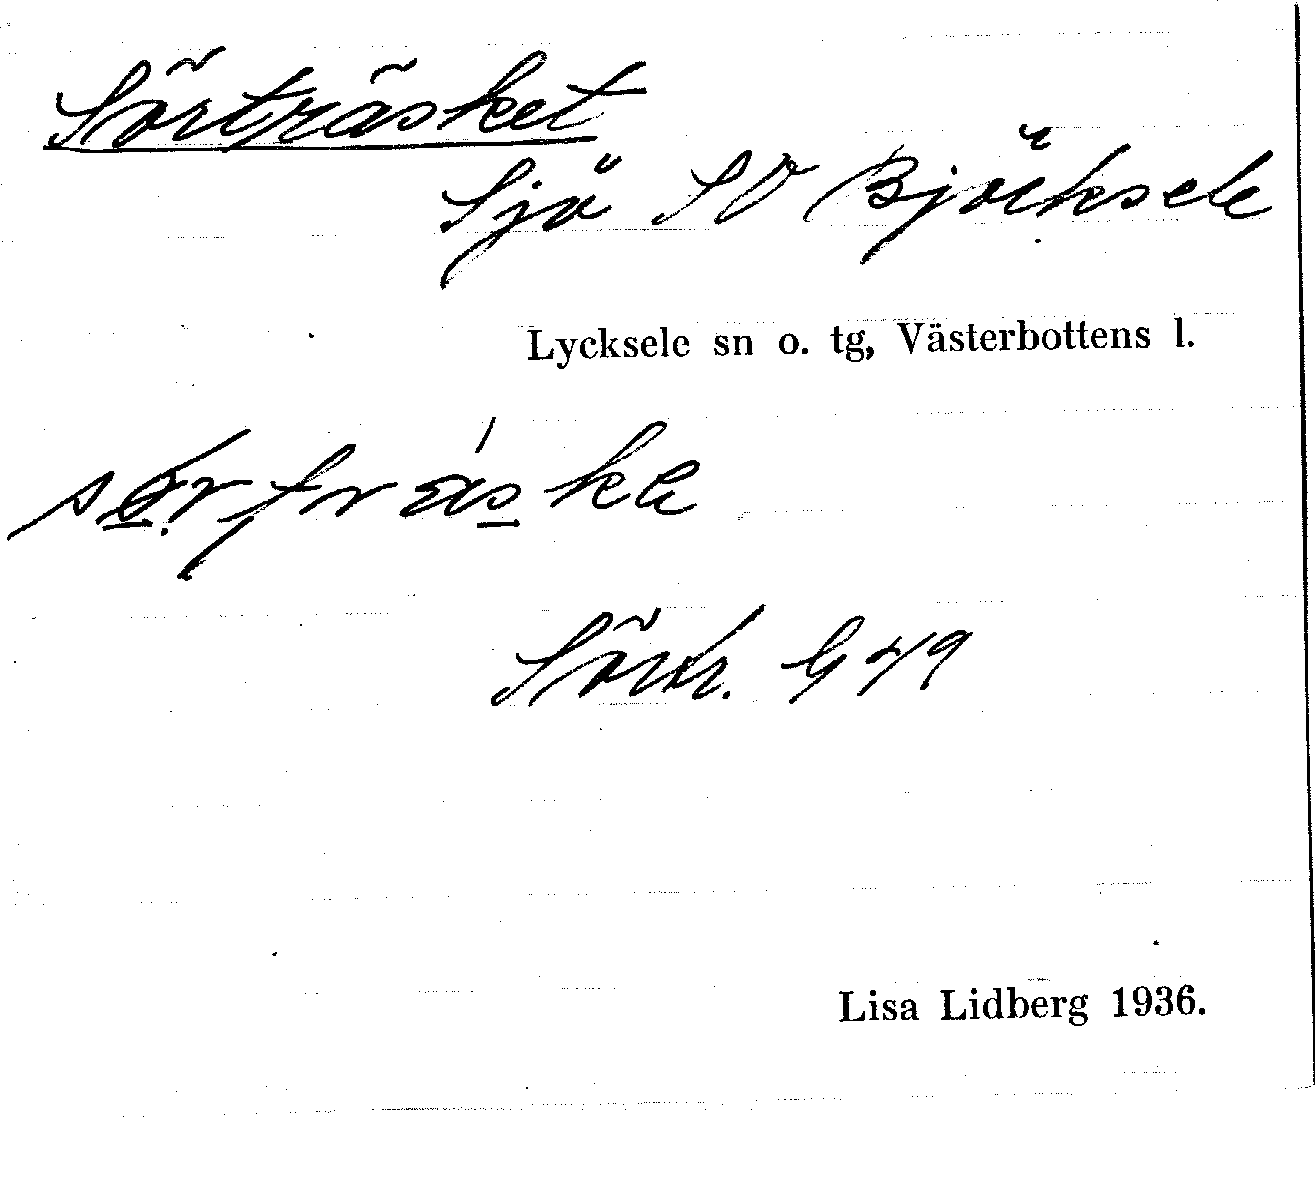 Sörträsket
Sjö SV Björksele
Lycksele sn o. tg, Västerbottens l.
Sörtr. G 49
Lisa Lidberg 1936.